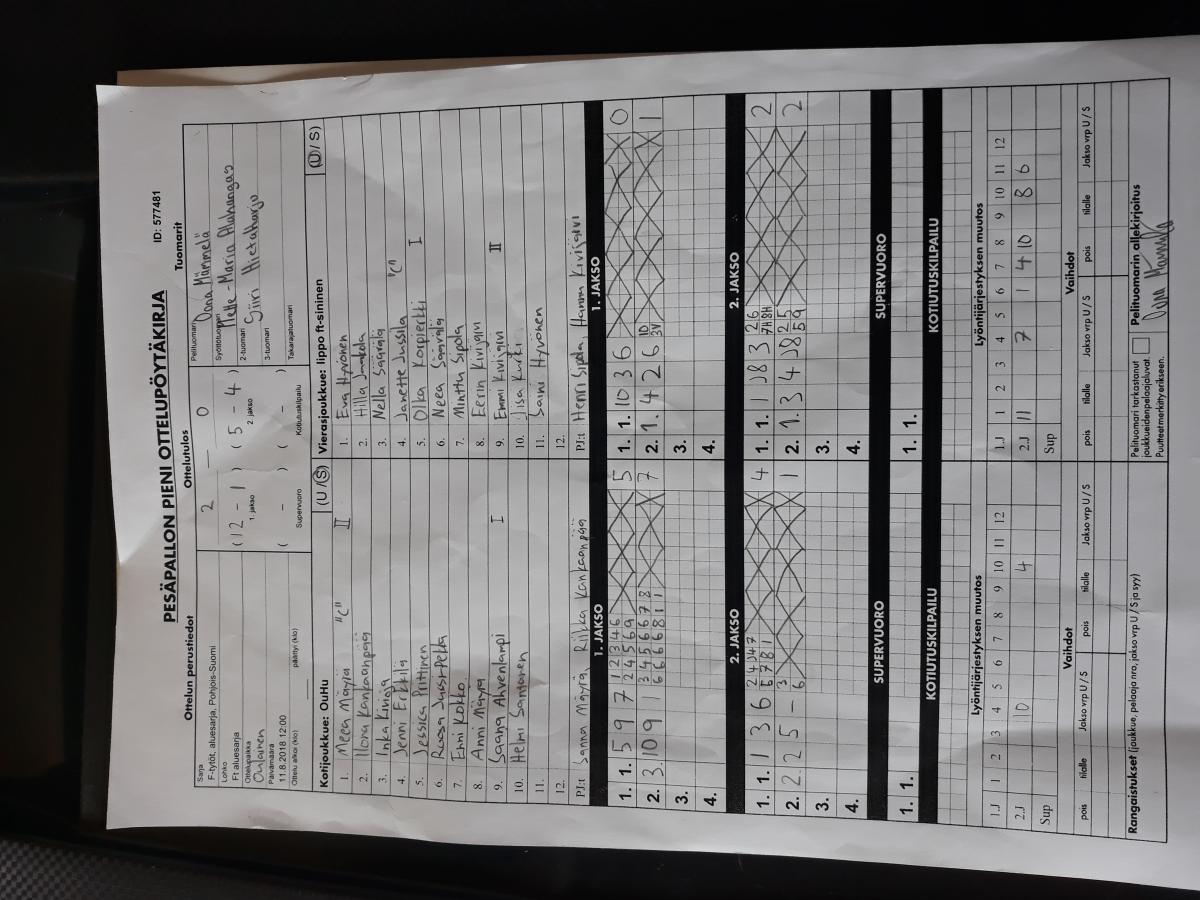 PESÄPALLON PIENI OTTELUPÖYTÄKIRJA
ID: 577481
Ottelun perustiedot
Sarja
F-tytöt, aluesarja, Pohjois-Suomi
Lohko
Ft aluesarja
Ottelupaikka
Oulainen
Päivämäärä
11.8.2018 12:00
Ottelu alkoi (klo) päättyi (klo)
Ottelutulos
2 — 0
( 12 - 1 ) ( 5 - 4 )
1. jakso 2. jakso
( - ) ( - )
Supervuoro Kotiutuskilpailu
Tuomarit
Pelituomari
Oona Mammela
Syöttötuomari
Mette-Maria Aluhungas
2-tuomari
Siiri Hietaharju
3-tuomari
Takarajatuomari
Kotijoukkue: OuHu (U / S)
1. Meea Mäyrä "C" II
2. Ilona Kankaanpää
3. Inka Kivioja
4. Jenni Erkkilä
5. Jessica Prittinen
6. Roosa Jussi-Pekka
7. Enni Kokko
8. Anni Mäyrä
9. Saana Ahvenlampi I
10. Helmi Santanen
11.
12.
PJ:t Sanna Mäyrä, Riikka Kankaanpää
Vierasjoukkue: lippo ft-sininen (U / S)
1. Eva Hyvönen
2. Hilla
3. Nella Säärälä
4. Janette Jussila "C"
5. Olka Korpiectki I
6. Neea Säärälä
7. Minttu Sipola
8. Eerin Kivijärvi
9. Emmi Kivijärvi II
10. Iisa Kurki
11. Saini Hyvönen
12.
PJ:t Henri Sipola, Hannu Kivijärvi
1. JAKSO
1. 1. 5 9 7 1 2 3 4 6 5
2 4 5 6 9
2. 3. 10 9 1 3 4 5 6 6 7 8 7
6 6 6 6 8 1 1
3.
4.
1. JAKSO
1. 1. 10 3 6 0
2. 1. 4 2 6 1D 1
3V
3.
4.
2. JAKSO
1. 1. 1 3 6 2 4 10 4 7 4
6 7 8 1
2. 2. 2 5 - 3 1
6
3.
4.
2. JAKSO
1. 1. 1 10 8 3 2 6 2
7H 8H
2. 1. 3 4 10 8 2 5 2
8 5 9
3.
4.
SUPERVUORO
1. 1.
SUPERVUORO
1. 1.
KOTIUTUSKILPAILU
KOTIUTUSKILPAILU
Lyöntijärjestyksen muutos
1.J 1 2 3 4 5 6 7 8 9 10 11 12
2.J 10 4
Sup
Lyöntijärjestyksen muutos
1.J 1 2 3 4 5 6 7 8 9 10 11 12
2.J 11 7 1 4 10 8 6
Sup
Vaihdot
pois tilalle Jakso vrp U / S pois tilalle Jakso vrp U / S
Vaihdot
pois tilalle Jakso vrp U / S pois tilalle Jakso vrp U / S
Rangaistukset (joukkue, pelaaja nro, jakso vrp U / S ja syy)
Pelituomari tarkastanut
joukkueiden pelaajaluvat
Puutteet merkitty erikseen.
Pelituomarin allekirjoitus
Oona Mammela